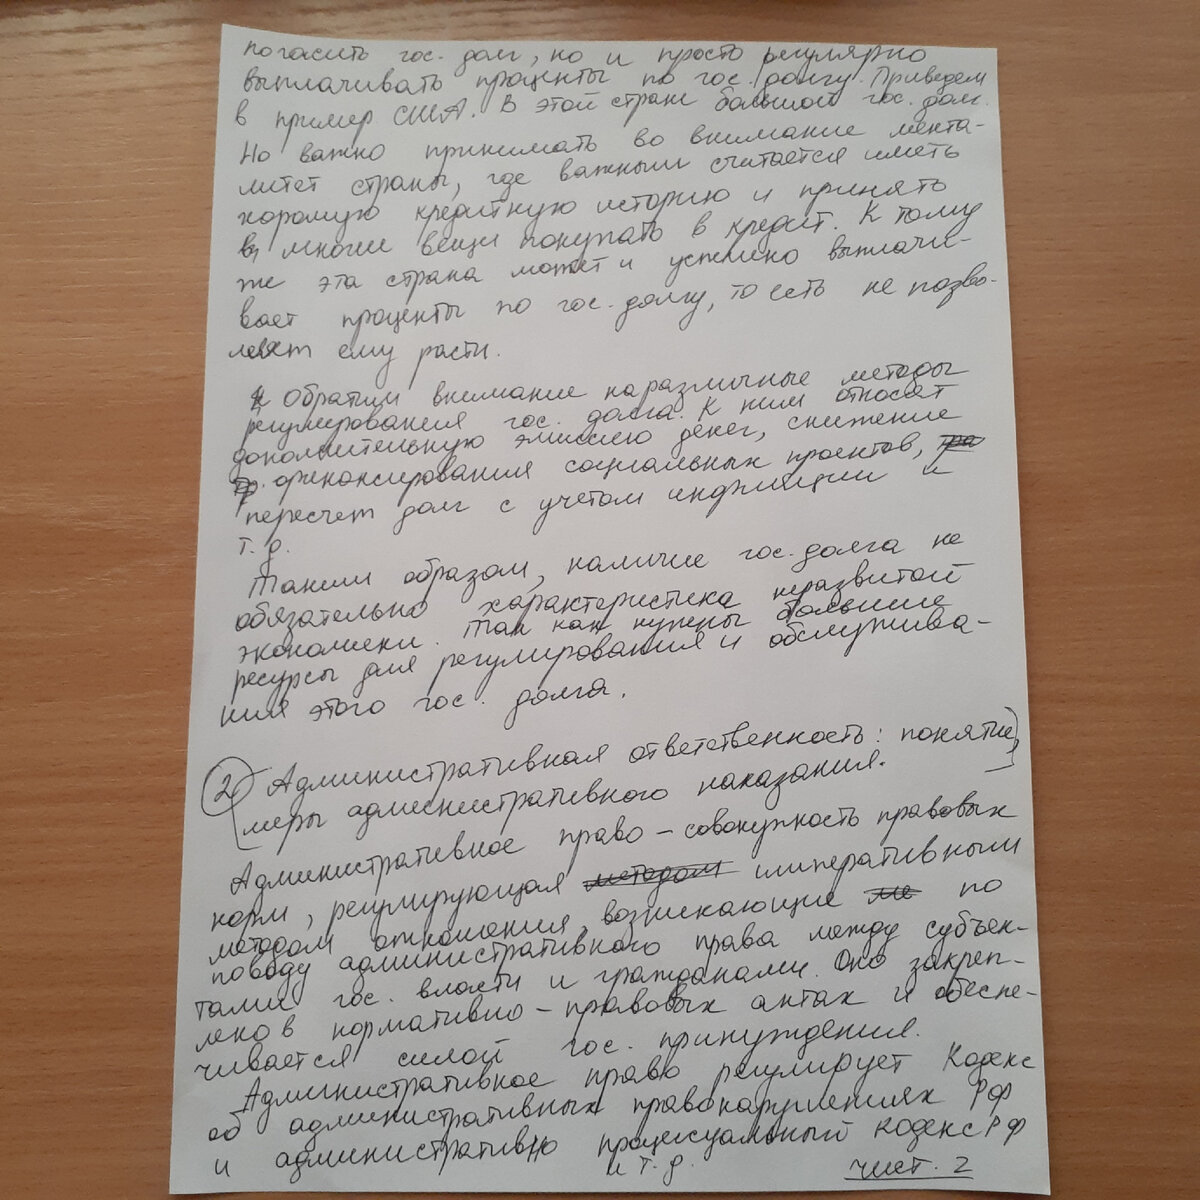 погасить гос. долг, но и просто регулярно
выплачивать проценты по гос. долгу. Приведем
в пример США. В этой стране большой гос. долг.
Но важно принимать во внимание мента-
литет страны, где важным считается иметь
хорошую кредитную историю и принять
в многие вещи покупать в кредит. К тому
же эта страна может и успешно выплачи-
вает проценты по гос. долгу, то есть не позво-
ляет ему расти.
Обратим внимание на различные методы
регулирования гос. долга. К ним относят
дополнительную эмиссию денег, снижение
финансирования социальных проектов,
пересчет долг с учетом инфляции и
т. д.
Таким образом, наличие гос. долга не
обязательно характеристика неразвитой
экономики. Так как нужны большие
ресурсы для регулирования и обслужива-
ния этого гос. долга.
2 Административная ответственность: понятие,
меры административного наказания.
Административное право – совокупность правовых
норм, регулирующая методом императивным
методом отношения возникающие по
поводу административного права между субъек-
тами гос. власти и гражданами. Оно закреп-
лено в нормативно-правовых актах и обеспе-
чивается силой гос. принуждения.
Административное право регулирует Кодекс
об административных правонарушениях РФ
и административно процессуальный кодекс РФ
и т. д. чист. 2